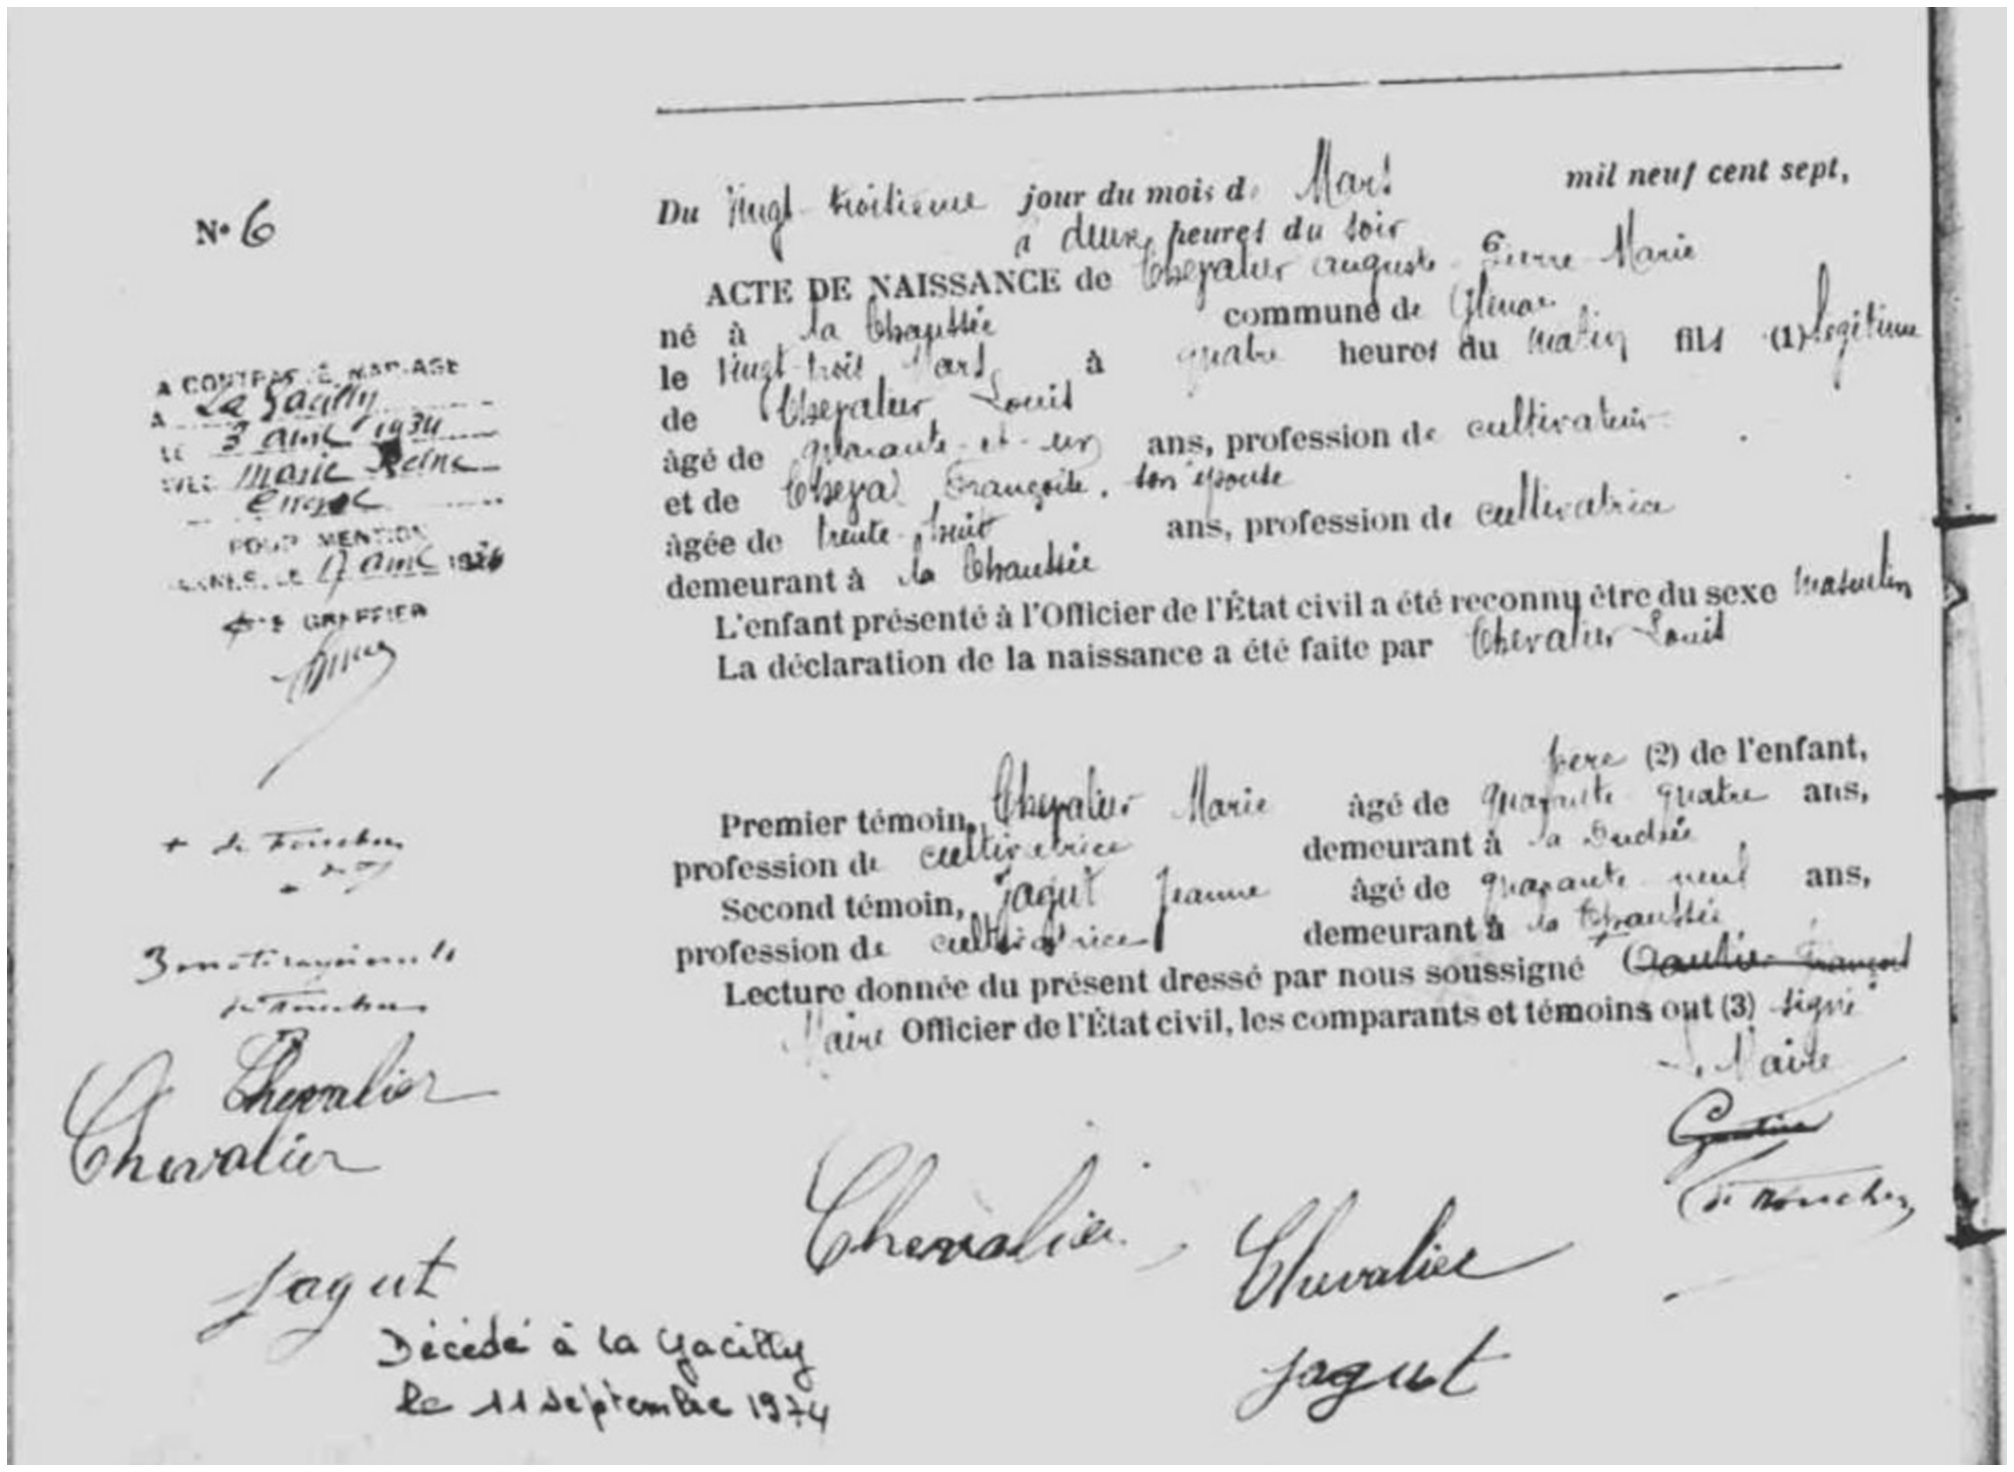 N° 6
Du Vingt-troisième jour du mois de Mars mil neuf cent sept,
à deux heures du soir
ACTE DE NAISSANCE de Chevalier Auguste Pierre Marie
né à la Chaussée commune de Glénac
le Vingt-trois Mars à quatre heures du matin fils (1) légitime
de Chevalier Louis
âgé de quarante-et-un ans, profession de cultivateur
et de Cheval Françoise, son épouse
âgée de trente-huit ans, profession de cultivatrice
demeurant à la Chaussée
L'enfant présenté à l'Officier de l'État civil a été reconnu être du sexe masculin
La déclaration de la naissance a été faite par Chevalier Louis
père (2) de l'enfant,
Premier témoin, Chevalier Marie âgé de quarante-quatre ans,
profession de cultivatrice demeurant à la
Second témoin, Jagut Jeanne âgé de quarante-neuf ans,
profession de cultivatrice demeurant à la Chaussée
Lecture donnée du présent dressé par nous soussigné Gautier François
Maire Officier de l'État civil, les comparants et témoins ont (3) signé
Le Maire
Gautier
A CONTRACTÉ MARIAGE
A La Gacilly
LE 3 avril 1934
AVEC Marie Reine
POUR MENTION
LE 17 avril 1934
LE GREFFIER
Chevalier
Chevalier
Jagut
Chevalier
Chevalier
Jagut
Décédé à la Gacilly
le 11 septembre 1974